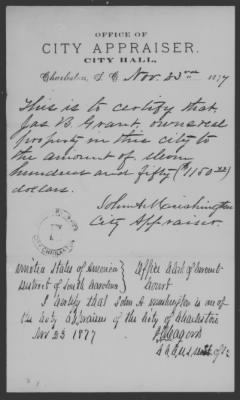 OFFICE OF
CITY APPRAISER.
CITY HALL,
Charleston, S. C. Nov. 23rd 1877
This is to certify that
Jas B. Grant, owns real
property in this city to
the amount of eleven
hundred and fifty ($1150 00)
dollars.
John A. Mushington
City Appraiser.
United States of America } Office Clerk of Circuit
District of South Carolina } Court
I certify that John A Mushington is one of
the City Appraisers of the City of Charleston
Nov 23 1877